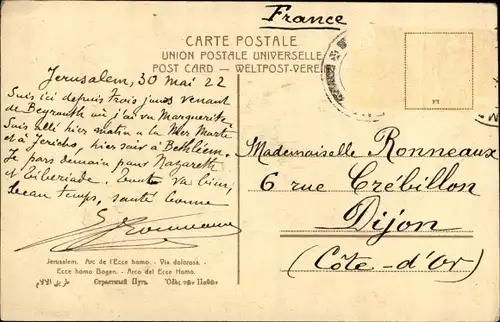 France
CARTE POSTALE
UNION POSTALE UNIVERSELLE
POST CARD — WELTPOST-VEREI
Jerusalem, 30 mai 22
Suis ici depuis trois jours venant
de Beyrouth où j'ai vu Marguerite
Suis allé hier matin à la Mer Morte
et à Jéricho, hier soir à Bethléem.
Je pars demain pour Nazareth
et Tibériade. Tout va bien,
beau temps, santé bonne
Mademoiselle Ronneaux
6 rue Crébillon
Dijon
(Côte-d'Or)
Jerusalem. Arc de l'Ecce homo. - Via dolorosa. -
Ecce homo Bogen. - Arco del Ecce Homo.
Страстный Путь